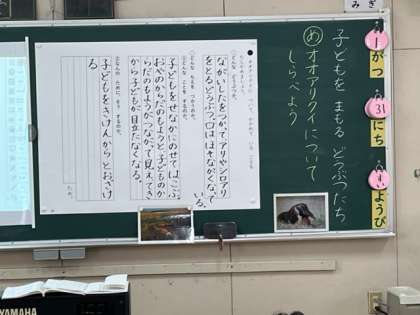 みぎ
1がつ
31にち
すいようび
子どもを まもる どうぶつたち
め オオアリクイについて
しらべよう
ながいしたをつかって、アリやシロアリ
をとるどうぶつ。口はほそながくなって
いる。
子どもをせなかにのせてはこぶ。
おやのからだのもようと、子どものか
らだのもようがつながって見えてき
から子どもが目立たなくなる。
どんな ために、そう するのか。
子どもをきけんからとおざけ
る
ため。
YAMAHA